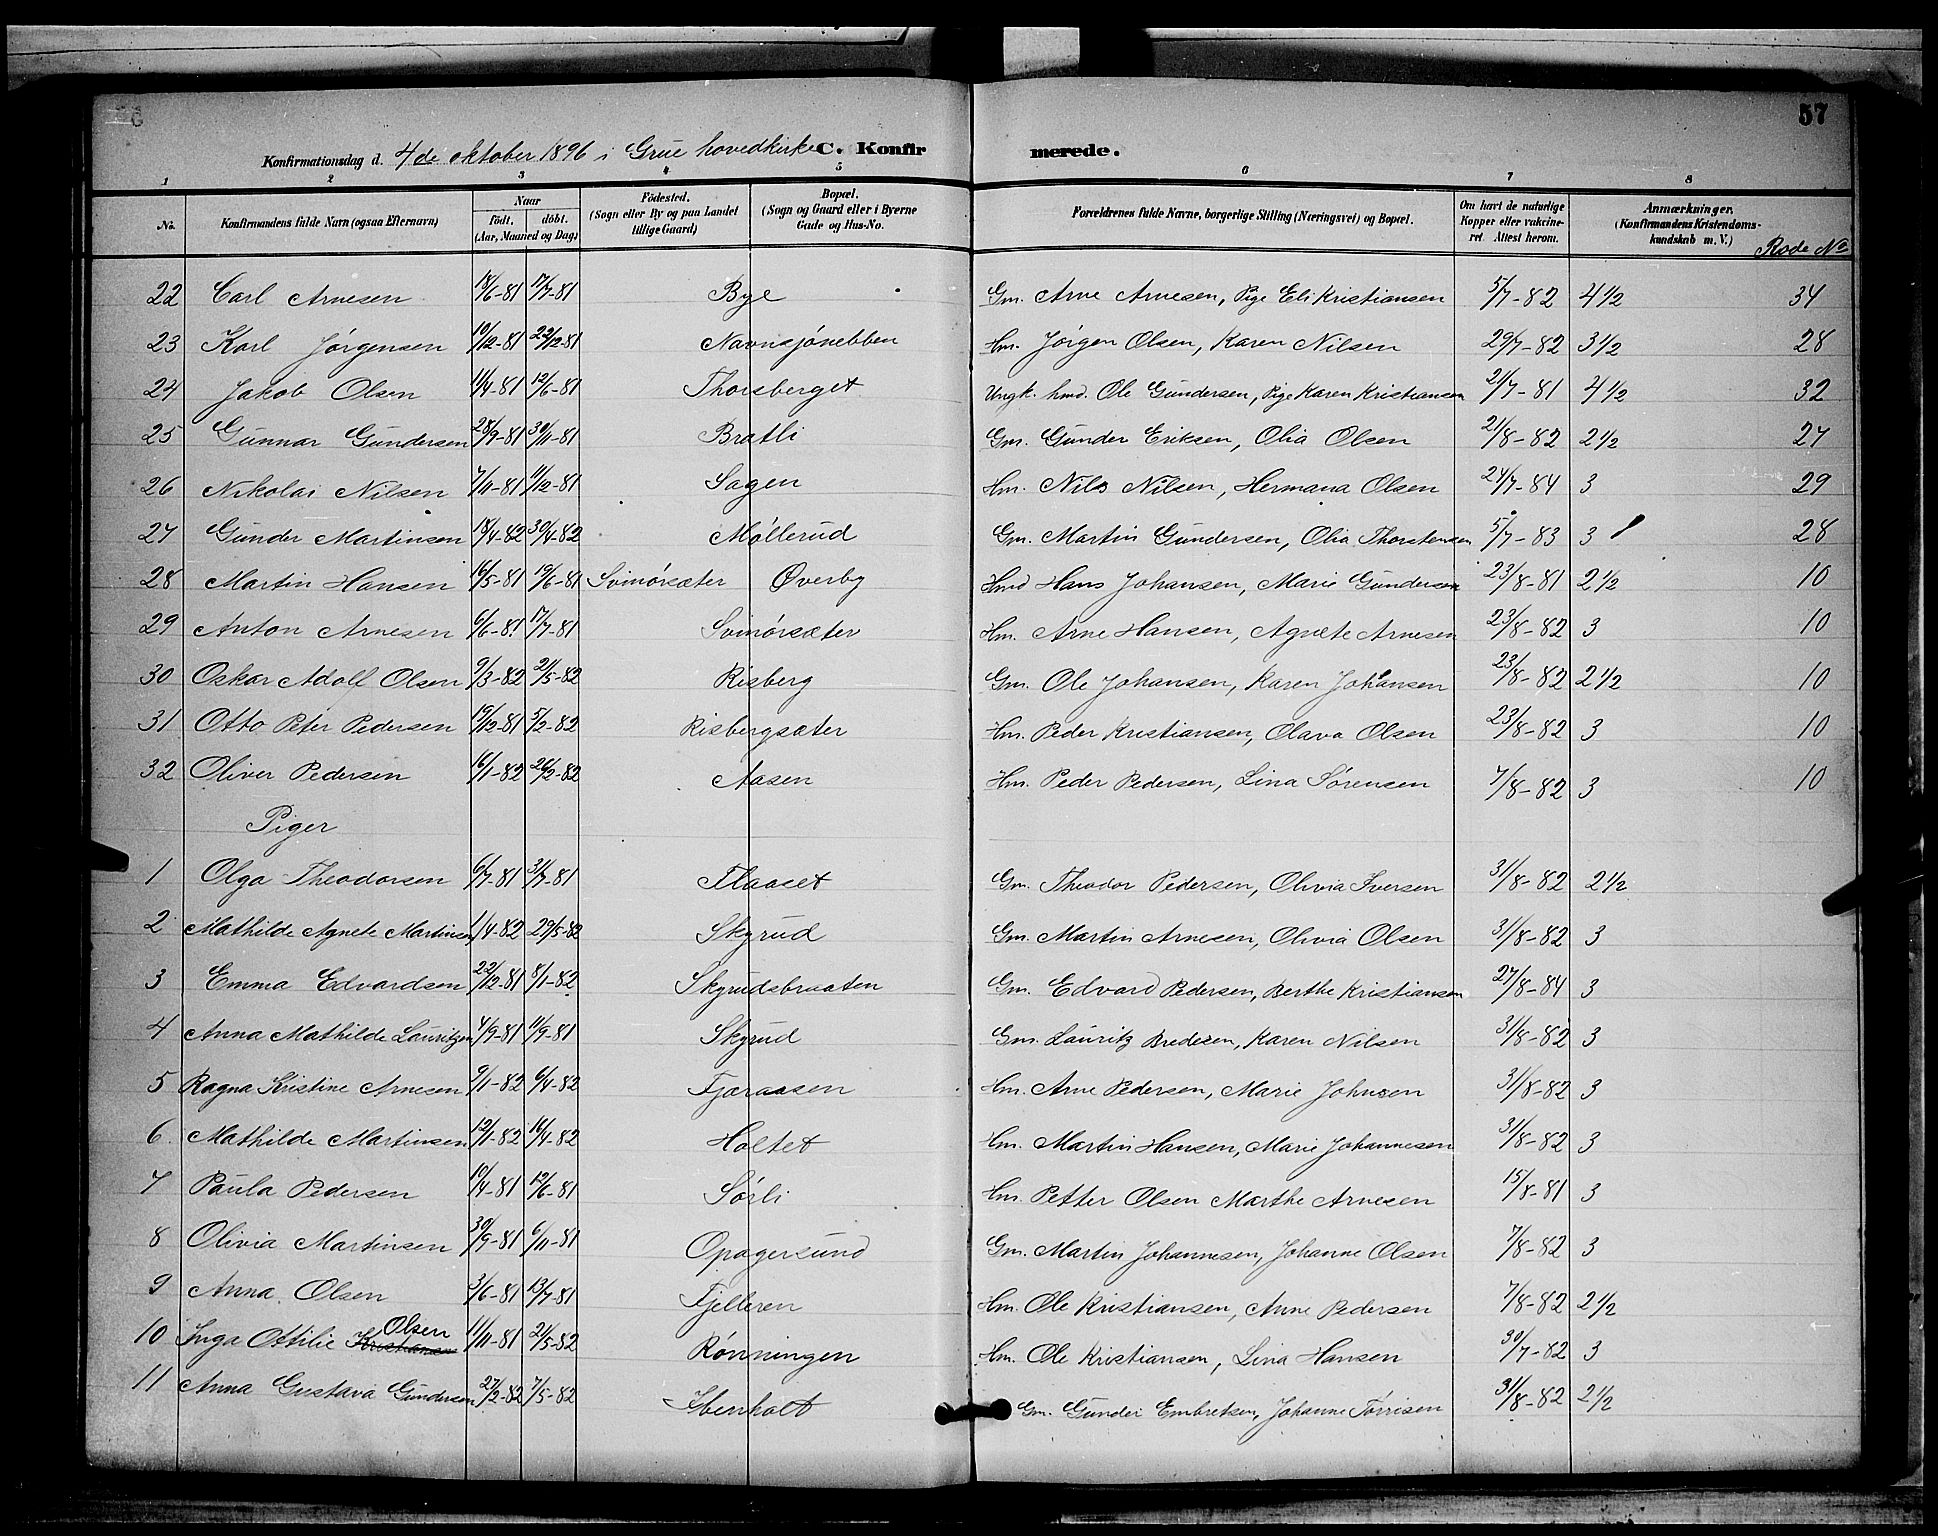 57
Konfirmationsdag d. 4de oktober 1896 i Grue hovedkirke C. Konfir merede.
1 2 3 4 5 6 7 8
No. Konfirmandens fulde Navn (ogsaa Efternavn) Naar født, døbt. (Aar, Maaned og Dag) Fødested. (Sogn eller By og paa Landet tillige Gaard) Bopæl. (Sogn og Gaard eller i Byerne Gade og Hus-No. Forældrenes fulde Navne, borgerlige Stilling (Næringsvei) og Bopæl. Om havt de naturlige Kopper eller vakcineret. Attest herom. Anmærkninger. (Konfirmandens Kristendomskundskab m. V.) Rode No
22 Carl Arnesen 18/6-81 17/7-81 Bye Gm. Arne Arnesen, Pige Eli Kristiansen 5/7-82 4 1/2 34
23 Karl Jørgensen 10/12-81 22/12-81 Navnsjønebben Hm. Jørgen Olsen, Karen Nilsen 29/7-82 3 1/2 28
24 Jakob Olsen 11/4-81 12/6-81 Thorsberget Ungk. hmd. Ole Gundersen, Pige Karen Kristiansen 21/7-81 4 1/2 32
25 Gunnar Gundersen 28/9-81 30/11-81 Bratli Gm. Gunder Eriksen, Olia Olsen 21/8-82 2 1/2 27
26 Nikolai Nilsen 7/11-81 11/12-81 Sagen Hm. Nils Nilsen, Hermana Olsen 24/7-84 3 29
27 Gunder Martinsen 18/4-82 30/4-82 Møllerud Gm. Martin Gundersen, Olia Thorstensen 5/7-83 3 28
28 Martin Hansen 16/5-81 19/6-81 Svinørsæter Øverby Hmd Hans Johansen, Marie Gundersen 23/8-81 2 1/2 10
29 Anton Arnesen 6/6-81 17/7-81 Svinørsæter Hm. Arne Hansen, Agnete Arnesen 23/8-82 3 10
30 Oskar Adolf Olsen 9/3-82 21/5-82 Risberg Gm. Ole Johansen, Karen Johansen 23/8-82 2 1/2 10
31 Otto Peter Pedersen 19/12-81 5/2-82 Risbergsæter Hm. Peder Kristiansen, Olava Olsen 23/8-82 3 10
32 Oliver Pedersen 16/1-82 26/2-82 Aasen Hm. Peder Pedersen, Lina Sørensen 7/8-82 3 10
Piger
1 Olga Theodorsen 6/7-81 31/7-81 Flaaset Gm. Theodor Pedersen, Olivia Iversen 31/8-82 2 1/2
2 Mathilde Agnete Martinsen 1/4-82 29/5-82 Skyrud Gm. Martin Arnesen, Olivia Olsen 31/8-82 3
3 Emma Edvardsen 22/12-81 8/1-82 Skyrudsbraaten Gm. Edvard Pedersen, Berthe Kristiansen 27/8-84 3
4 Anna Mathilde Lauritzen 4/9-81 11/9-81 Skyrud Gm. Lauritz Bredesen, Karen Nilsen 31/8-82 3
5 Ragna Kristine Arnesen 9/1-82 6/4-82 Fjæraasen Hm. Arne Pedersen, Marie Johnsen 31/8-82 3
6. Mathilde Martinsen 12/1-82 16/4-82 Holtet Hm. Martin Hansen, Marie Johannesen 31/8-82 3
7 Paula Pedersen 10/4-81 12/6-81 Sørli Hm. Petter Olsen Marthe Arnesen 15/8-81 3
8 Olivia Martinsen 30/9-81 6/11-81 Opagersund Gm. Martin Johannesen, Johanne Olsen 7/8-82 3
9 Anna Olsen 3/6-81 13/7-81 Fjelleren Hm. Ole Kristiansen, Anne Pedersen 7/8-82 2 1/2
10 Inga Ottilie Kristiansen Olsen 11/11-81 21/5-82 Rønningen Hm. Ole Kristiansen, Lina Hansen 30/7-82 3
11 Anna Gustava Gundersen 27/2-82 7/5-82 Ibenholt Gm. Gunder Embretsen, Johanne Torrisen 31/8-82 2 1/2